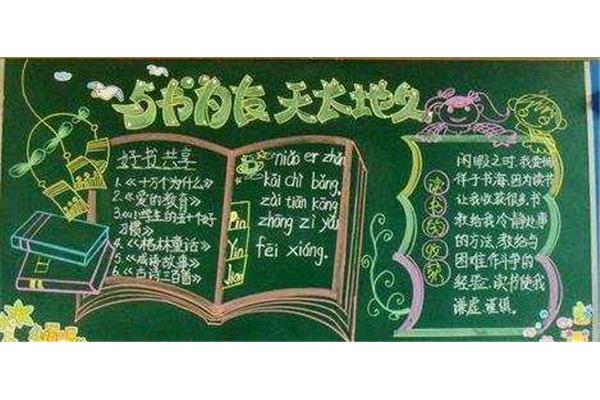 与书为友 天长地久
好书共享
1.《十万个为什么》
2.《爱的教育》
3.《小学生的五十个好
习惯》
4.《格林童话》
5.《成语故事》
6.《古诗三百首》
Pin
Yin
Jiao
niǎo er zhǎn
kāi chì bǎng,
zài tiān kōng
zhōng zì yóu
fēi xiáng.
读书的收获
闲暇之时,我爱徜
徉于书海,因为读书
让我收获很多,书
教给我冷静处事
的方法,教给与
困难作斗争的
经验,读书使我
谦虚,谨慎。